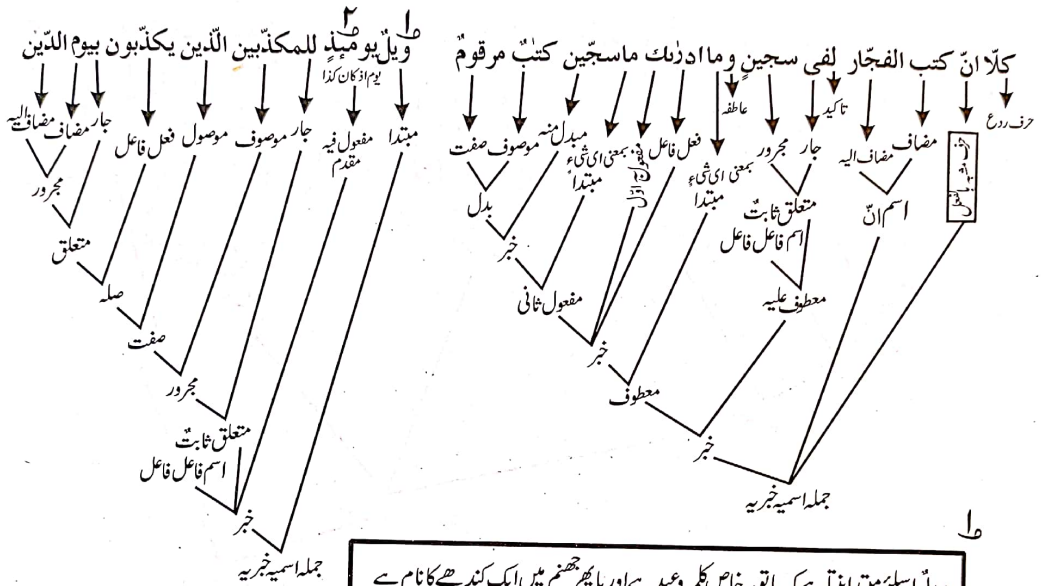 كلّا انّ كتب الفجّار لفى سجين وما ادرٰىك ماسجّين كتٰبٌ مرقومٌ
حرف ردع
حرف مشبہ بالفعل
مضاف
مضاف الیہ
تاکید
جار
مجرور
عاطفہ
بمعنی ای شیءٍ
مبتدأ
فعل فاعل
مفعول اوّل
بمعنی ای شیءٍ
مبتدأ
مبدل منہ
موصوف
صفت
اسم انّ
متعلق ثابتٌ
اسم فاعل فاعل
معطوف علیہ
بدل
خبر
مفعول ثانی
خبر
معطوف
خبر
جملہ اسمیہ خبریہ
۱
۲
ويلٌ يومئذٍ للمكذّبين الّذين يكذّبون بيوم الدّين
یوم اذ کان کذا
مبتدا
مفعول فیہ
مقدم
جار
موصوف
موصول
فعل فاعل
جار
مضاف
مضاف الیہ
مجرور
متعلق
صلہ
صفت
مجرور
متعلق ثابتٌ
اسم فاعل فاعل
خبر
جملہ اسمیہ خبریہ
۱
خاص کلمہ وعید ہے اور یا پھر جہنم میں ایک کندھے کا نام ہے